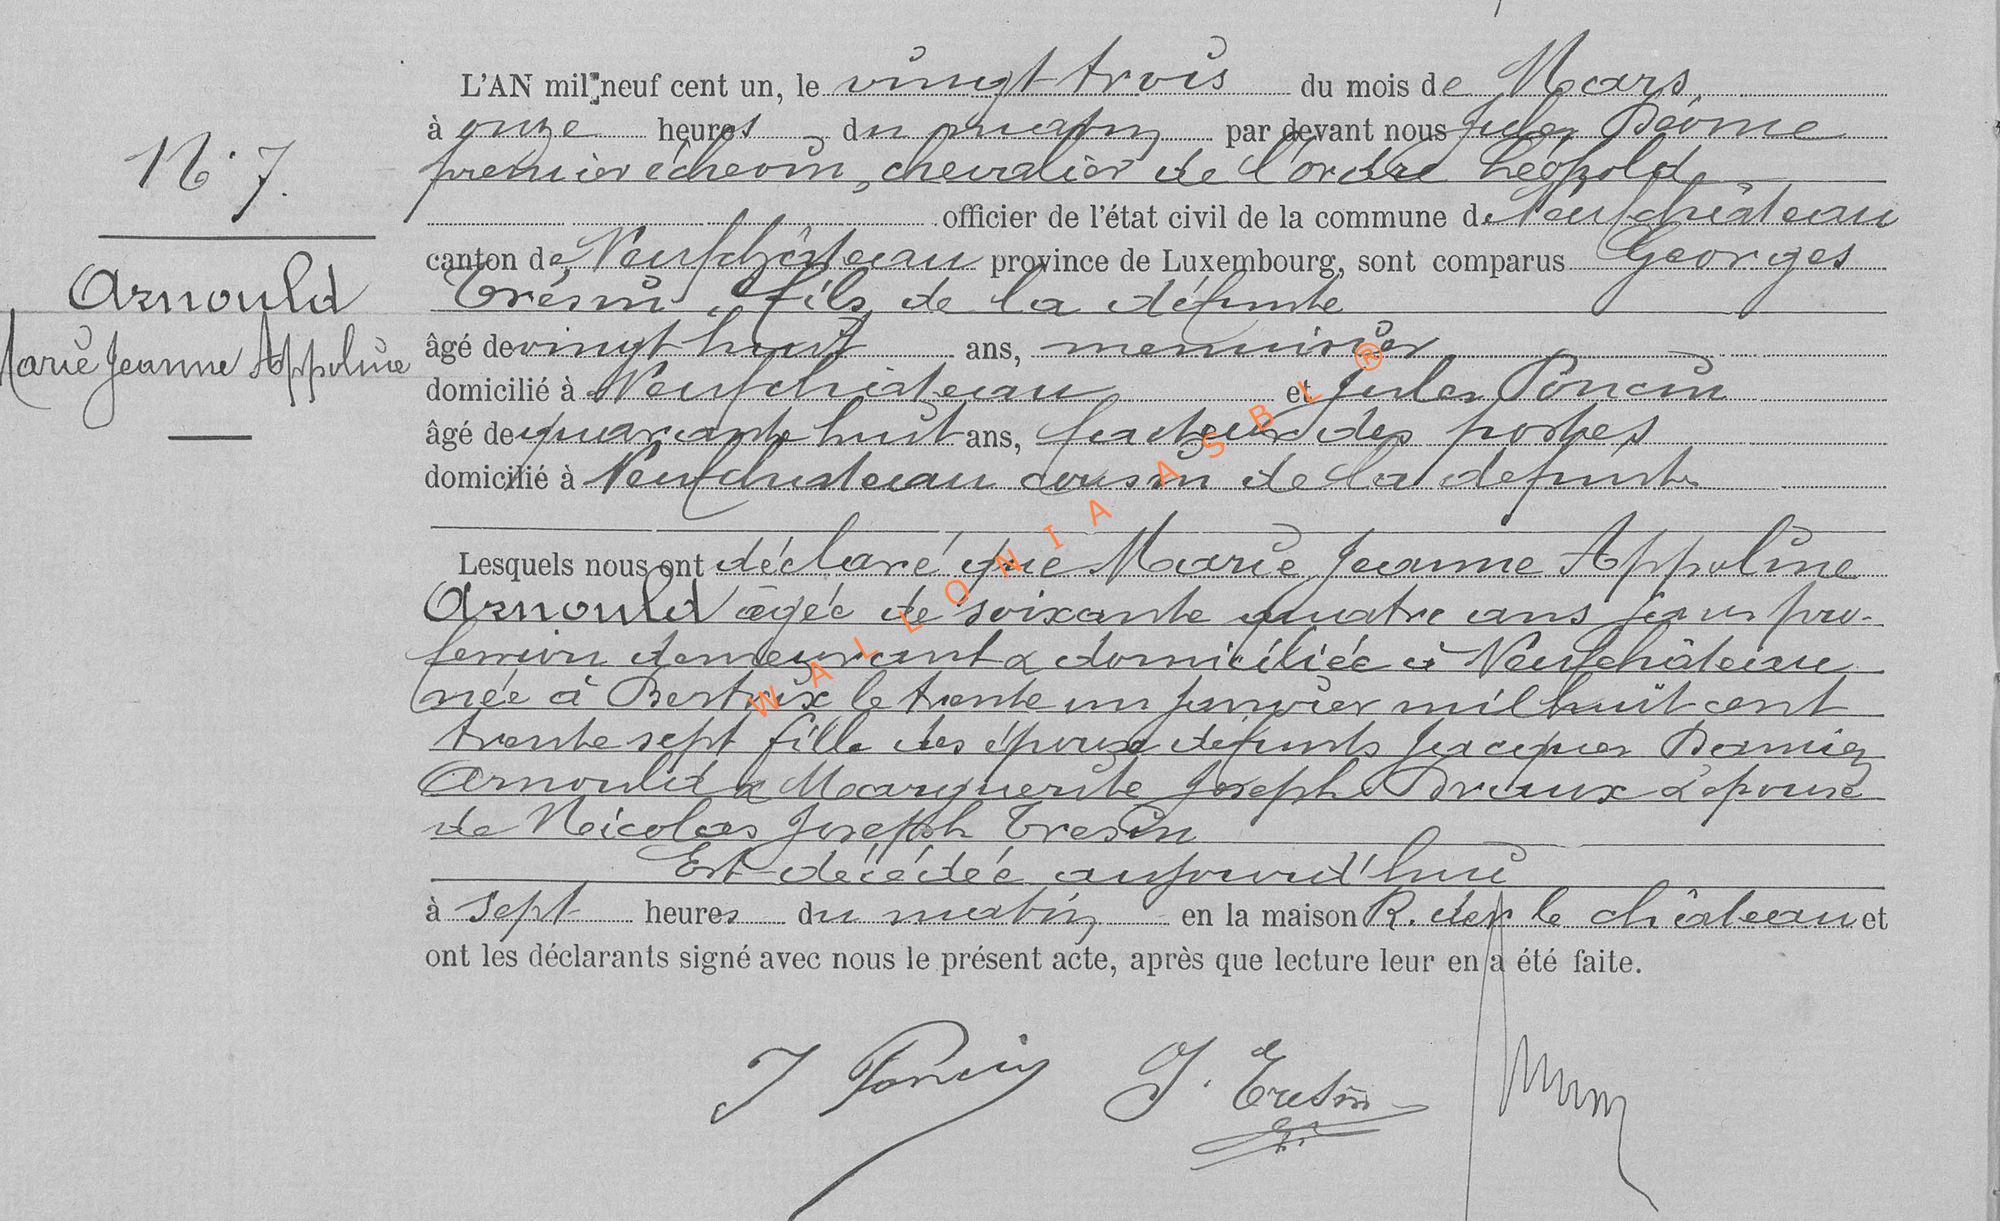 N° 7.
Arnould
Marie Jeanne Appoline
L'AN mil neuf cent un, le vingt trois du mois de Mars
à onze heures du matin par devant nous Jules
premier échevin, chevalier de l'ordre Léopold
officier de l'état civil de la commune de Neufchâteau
canton de Neufchâteau province de Luxembourg, sont comparus Georges
Trésin, fils de la défunte
âgé de vingt huit ans, menuisier
domicilié à Neufchâteau et Jules Poncin
âgé de quarante huit ans, facteur des postes
domicilié à Neufchateau cousin de la défunte
Lesquels nous ont déclaré que Marie Jeanne Appoline
Arnould âgée de soixante quatre ans sans pro-
fession demeurant & domiciliée à Neufchâteau
née à Bertrix le trente un janvier mil huit cent
trente sept fille des époux défunts Jacques Damien
Arnould & Marguerite Joseph & épouse
de Nicolas Joseph Tresin
Est décédée aujourd'hui
à sept heures du matin en la maison R. der le château et
ont les déclarants signé avec nous le présent acte, après que lecture leur en a été faite.
J Poncin G. Tresin
WALLONIA ASBL ®